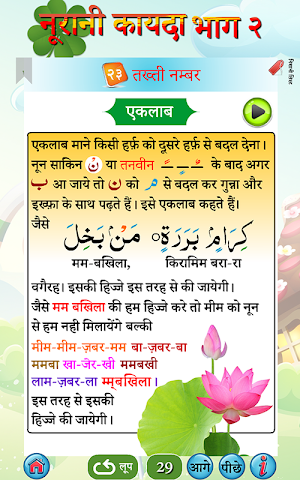 नूरानी कायदा भाग २
२३ तख्ती नम्बर
एकलाब
एकलाब माने किसी हर्फ़ को दूसरे हर्फ़ से बदल देना।
नून साकिन نْ या तनवीन ــًــٍــٌ के बाद अगर
ب आ जाये तो ن को م से बदल कर गुन्ना और
इख्फ़ा के साथ पढ़ते हैं। इसे एकलाब कहते हैं।
जैसे
كِرَامٍۭ بَرَرَةٍ مَنْۢ بَخِلَ
मम-बखिला, किरामिम बरा-रा
वगैरह। इसकी हिज्जे इस तरह से की जायेगी।
जैसे मम बखिला की हम हिज्जे करे तो मीम को नून
से हम नही मिलायेंगे बल्की
मीम-मीम-ज़बर-मम बा-ज़बर-बा
ममबा खा-जेर-खी ममबखी
लाम-ज़बर-ला म्मुबखिला।
इस तरह से इसकी
हिज्जे की जायेगी।
लूप 29 आगे पीछे